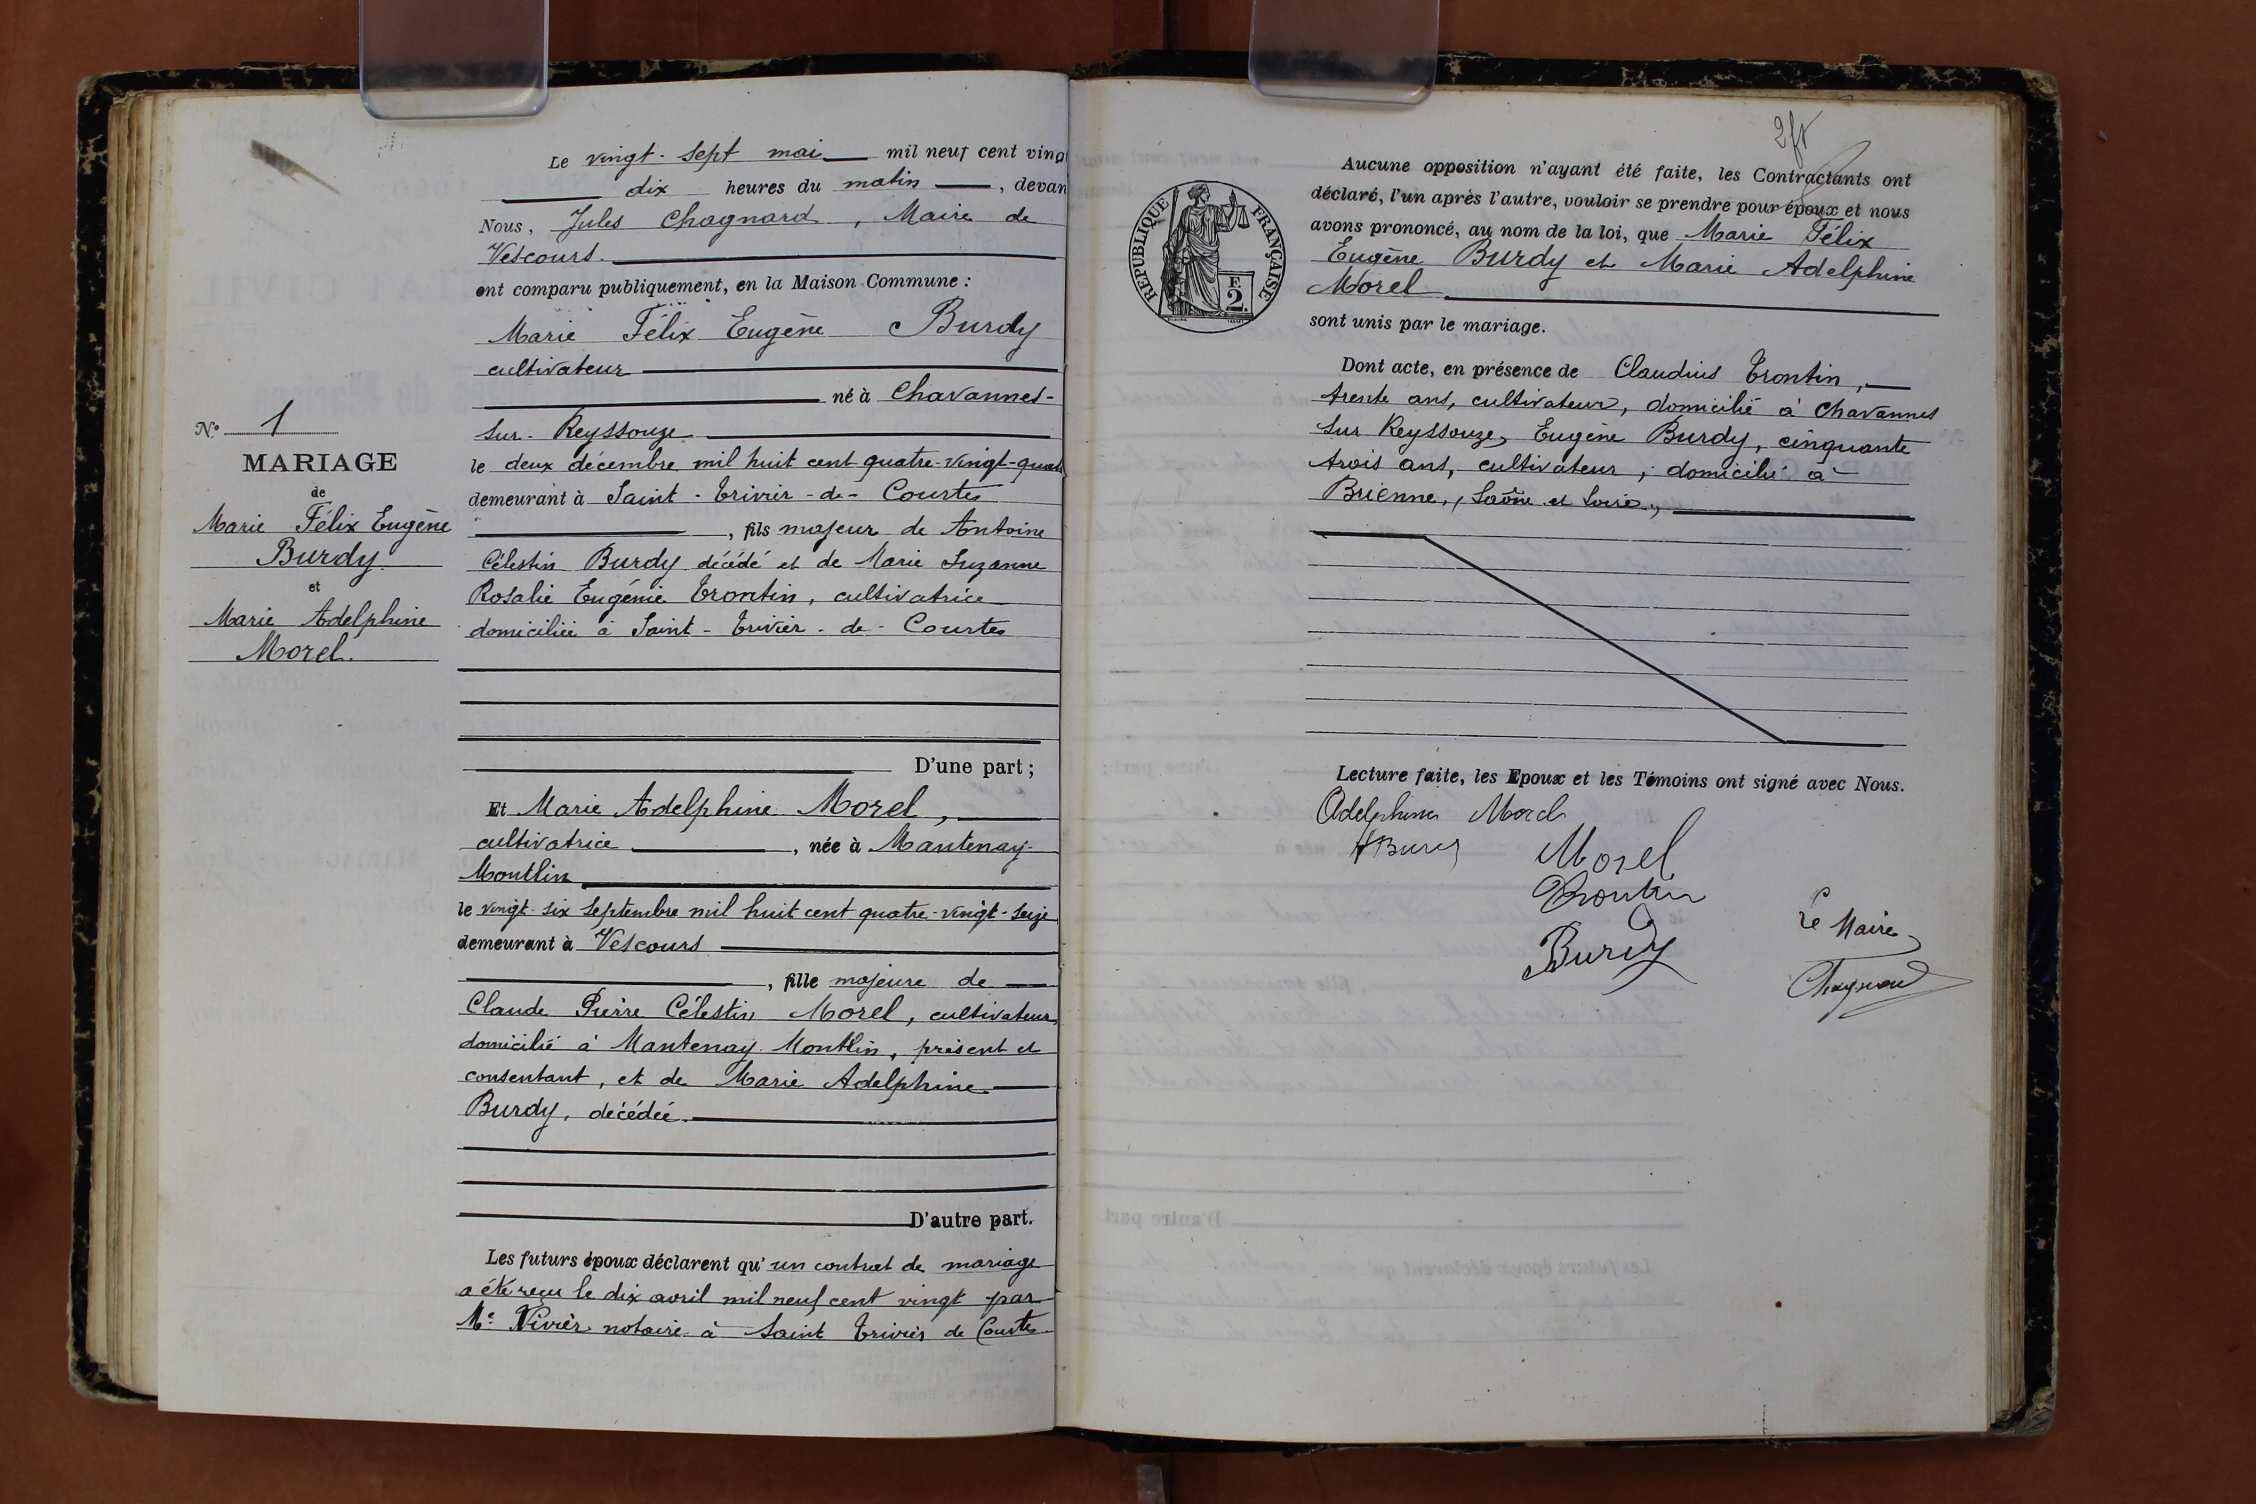 Le vingt-sept mai mil neuf cent ving
dix heures du matin, devan
Nous, Jules Chagnard, Maire de
Vescours.
ont comparu publiquement, en la Maison Commune :
Marie Félix Eugène Burdy
cultivateur
né à Chavannes-
sur-Reyssouze
le deux décembre mil huit cent quatre-vingt-quat
demeurant à Saint-Trivier-de-Courtes
, fils majeur de Antoine
Célestin Burdy décédé et de Marie Suzanne
Rosalie Eugénie Trontin, cultivatrice
domiciliée à Saint-Trivier-de-Courtes
D'une part ;
N° 1
MARIAGE
de
Marie Félix Eugène
Burdy
et
Marie Adelphine
Morel.
Et Marie Adelphine Morel,
cultivatrice, née à Mantenay-
Montlin
le vingt-six septembre mil huit cent quatre-vingt-seize
demeurant à Vescours
, fille majeure de
Claude Pierre Célestin Morel, cultivateur,
domicilié à Mantenay-Montlin, présent et
consentant, et de Marie Adelphine
Burdy, décédée.
D'autre part.
Les futurs époux déclarent qu'un contrat de mariage
a été reçu le dix avril mil neuf cent vingt par
Me Vivier notaire à Saint Trivier de Courtes
2 fr
RÉPUBLIQUE FRANÇAISE
F.
2
Aucune opposition n'ayant été faite, les Contractants ont
déclaré, l'un après l'autre, vouloir se prendre pour époux et nous
avons prononcé, au nom de la loi, que Marie Félix
Eugène Burdy et Marie Adelphine
Morel
sont unis par le mariage.
Dont acte, en présence de Claudius Trontin,
trente ans, cultivateur, domicilié à Chavannes
sur Reyssouze, Eugène Burdy, cinquante
trois ans, cultivateur, domicilié à
Brienne, (Saône et Loire),
Lecture faite, les Epoux et les Témoins ont signé avec Nous.
Adelphine Morel
Burdy
Morel
Trontin
Burdy
Le Maire
Chagnard